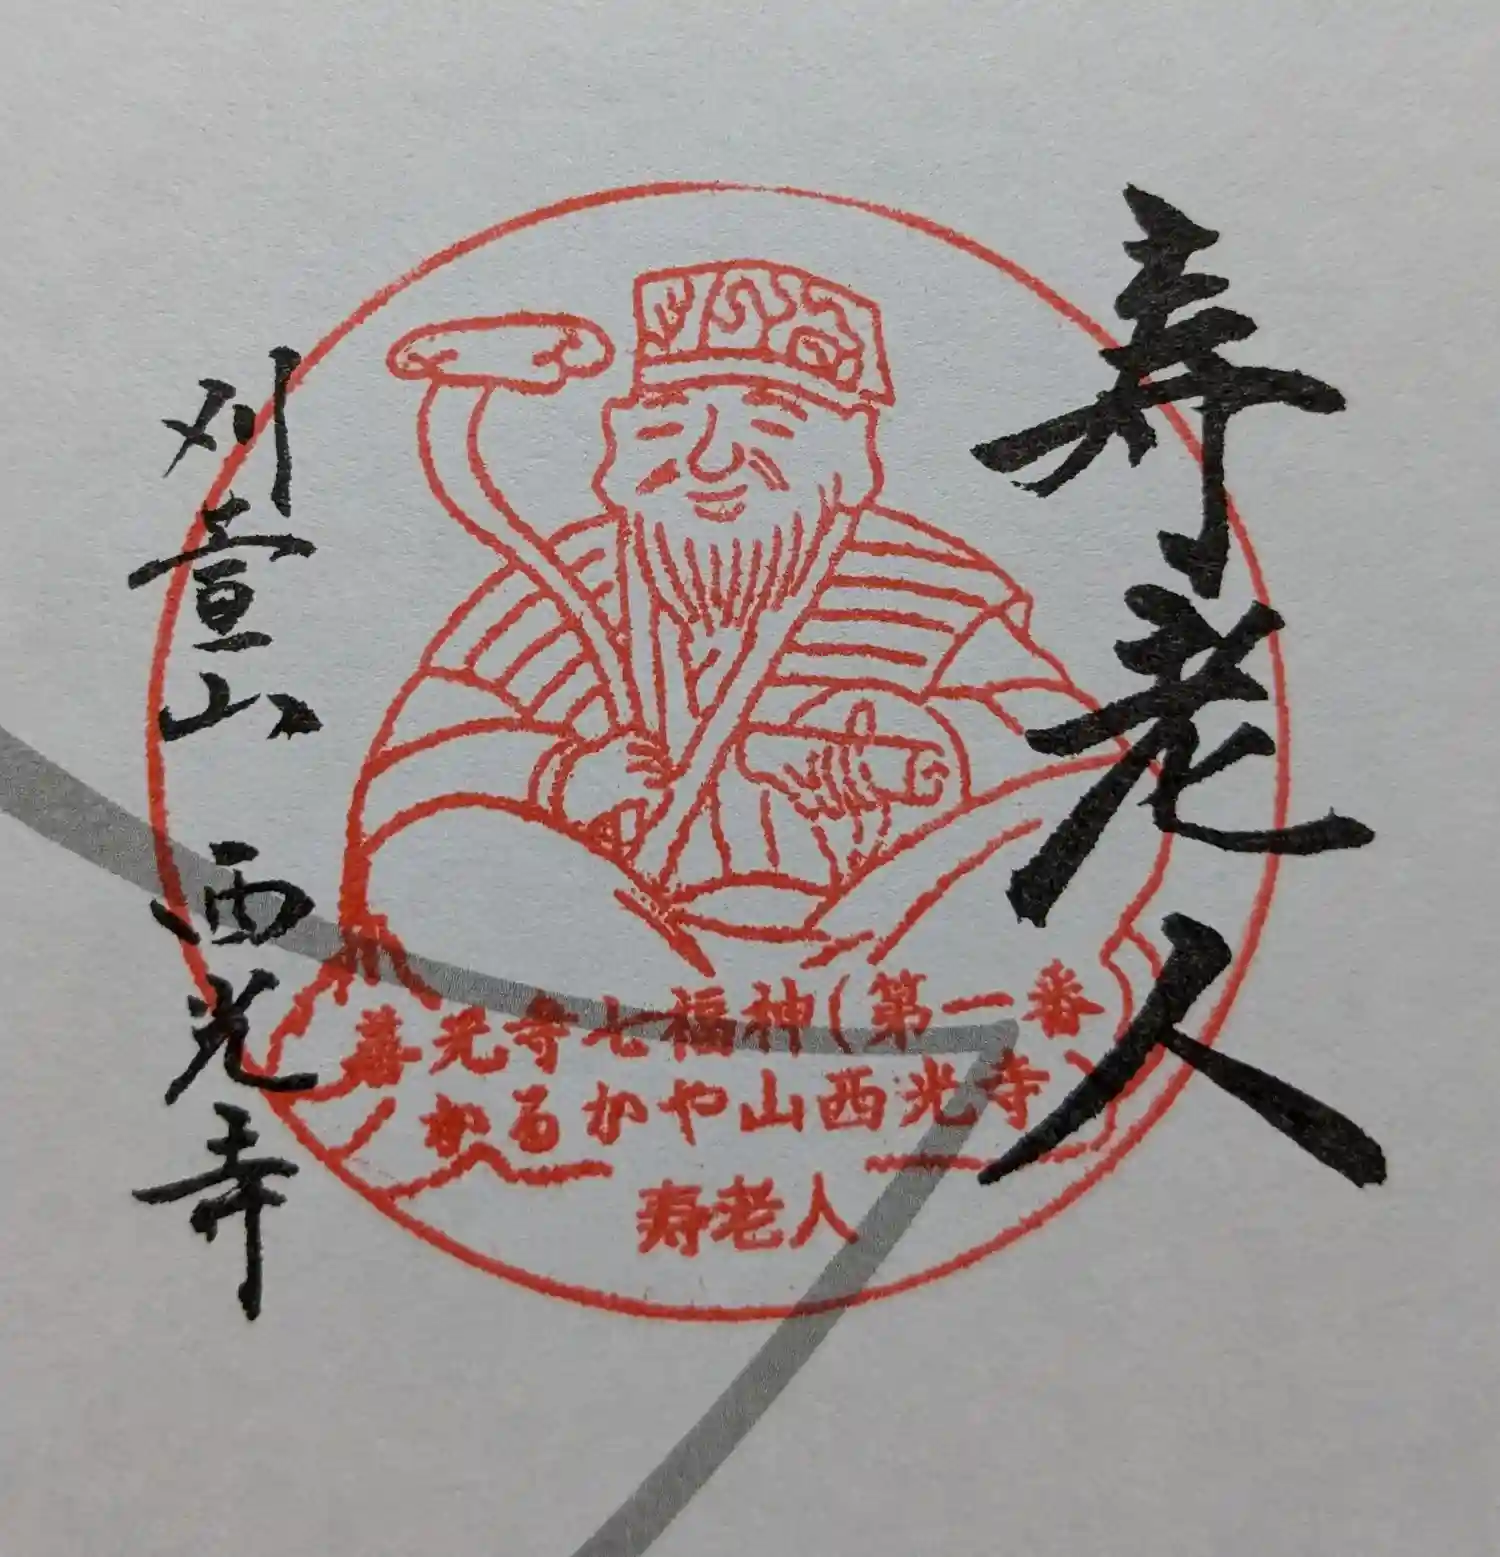 寿老人
善光寺七福神(第一番
かるかや山西光寺)
寿老人
刈萱山 西光寺